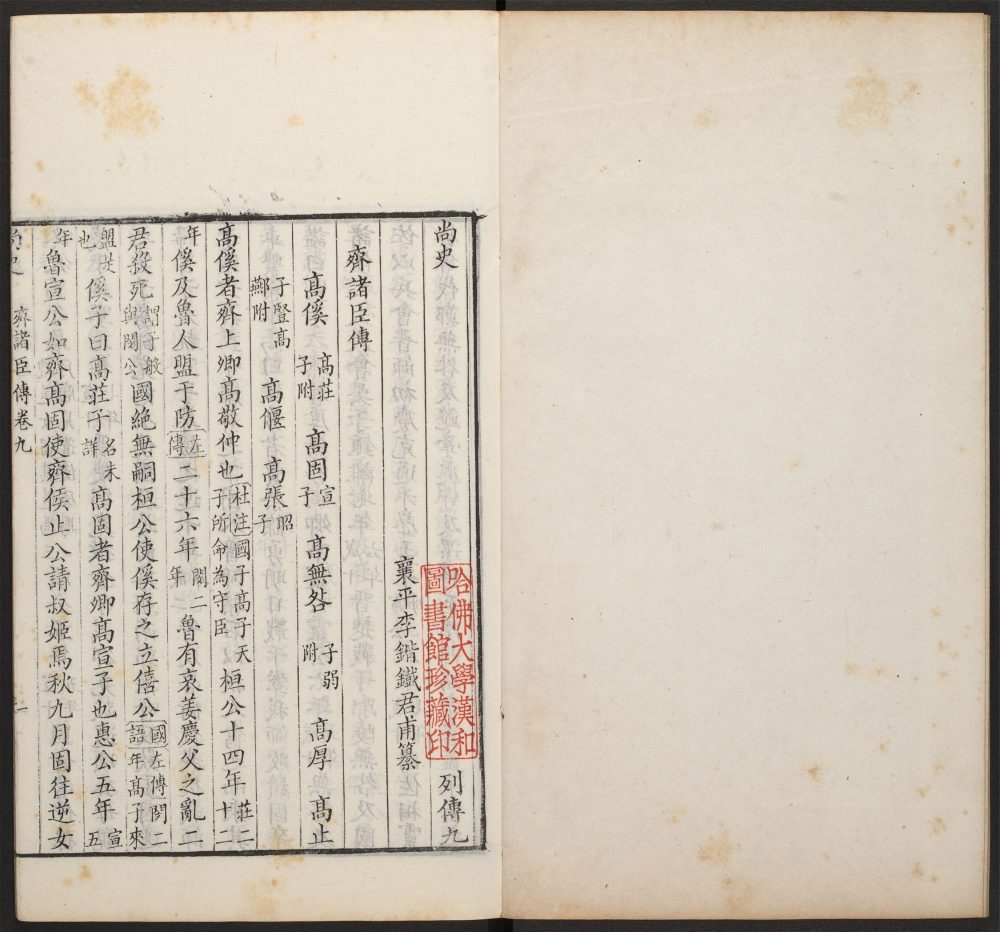 尚史 列傳九
襄平李鍇鐵君甫纂
哈佛大學漢和
圖書館珍藏印
齊諸臣傳
高傒 高莊子附 高固 宣子 高無咎 子弱附 高厚 高止
子豎高酀附 高偃 高張 昭子
高傒者齊上卿高敬仲也 杜注國子高子天子所命為守臣 桓公十四年 莊二十二
年傒及魯人盟于防 左傳 二十六年 閔二年 魯有哀姜慶父之亂二
君殺死 謂子般與閔公 國絶無嗣桓公使傒存之立僖公 國語左傳閔二年高子來
盟是也 傒子曰高莊子 名未詳 高固者齊卿高宣子也惠公五年 宣五
年 魯宣公如齊高固使齊侯止公請叔姬焉秋九月固往逆女
尚史 齊諸臣傳卷九 一